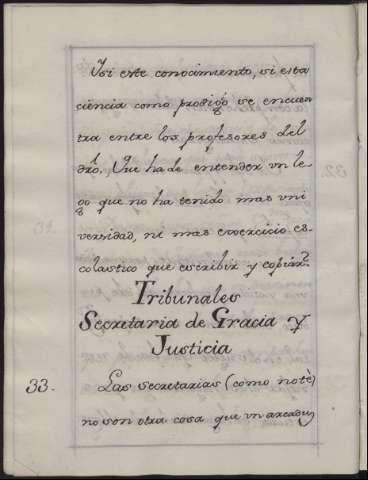 Y si este conocimiento, si esta
ciencia como prodigio se encuen
tra entre los profesores del
dro. Que ha de entender un le
go que no ha tenido mas uni
versidad, ni mas exercicio es-
colastico que escribir y copiar?
Tribunales
Secretaria de Gracia y
Justicia
33. Las secretarias (como noté)
no son otra cosa que un arcaduz